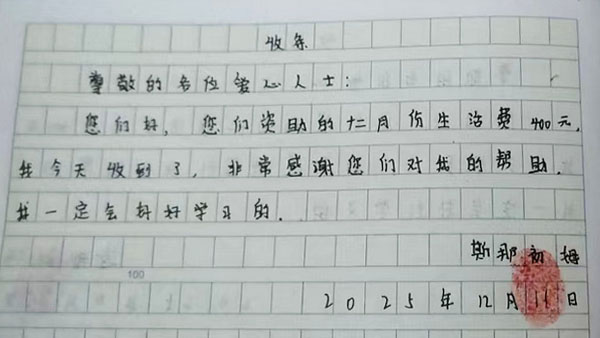 收条
尊敬的各位爱心人士:
您们好,您们资助的十二月份生活费400元,
我今天收到了,非常感谢您们对我的帮助.
我一定会好好学习的.
斯那初姆
100
2025年12月11日